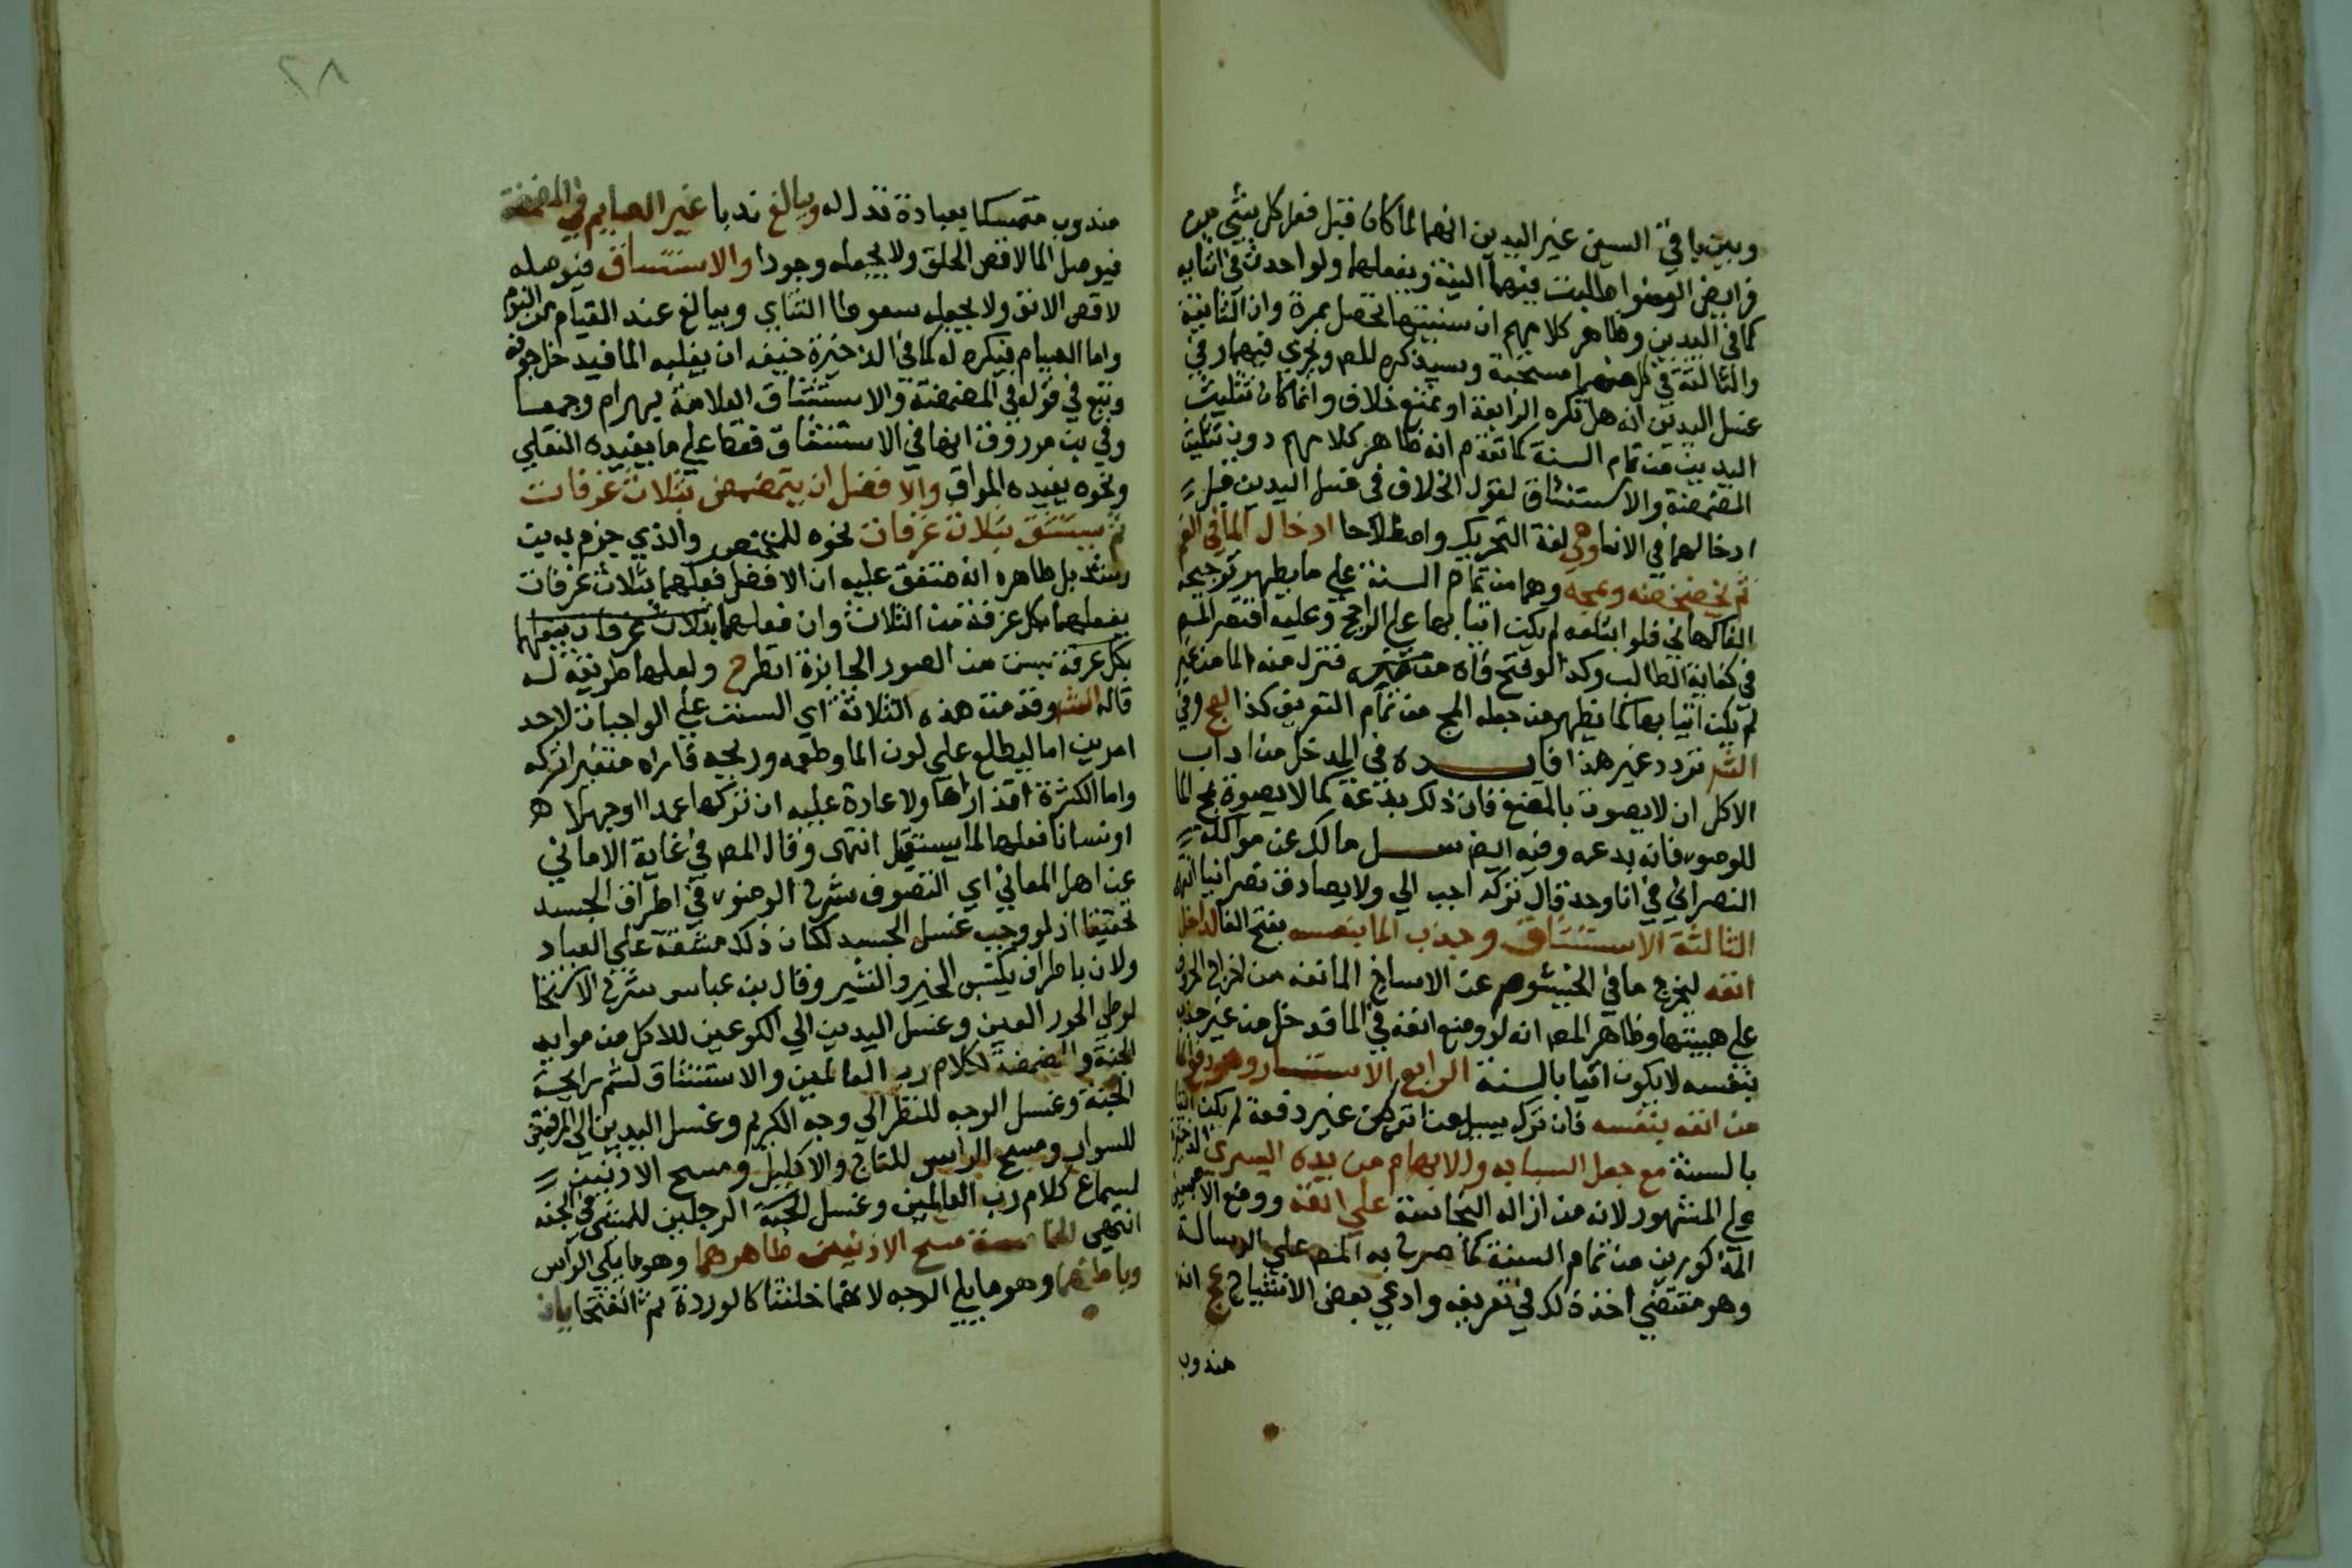 وبين باقي السين غير اليدين انهما لما كان قبل فعل كل شي من
فرايض الوضوا طلبت فيهما النية ويفعلهما ولو احدث في اثنايه
كما في اليدين وظاهر كلامهم ان سنيتها تحصل بمرة وان الثانية
والثالثة في كل منهما مستحبة وسيذكره المص ويجري فيهما في
غسل اليدين انه هل تكره الرابعة او تمنع خلاف وانما كان تثليث
اليدين من تمام السنة كما تقدم انه ظاهر كلامهم دون تثليث
المضمضة والاستنشاق لقول الخلاف في غسل اليدين قبل
ادخالهما في الانا وهي لغة التحريك واصطلاحا ادخال الما في الفم
ثم يخضخضه ويمجه وهما من تمام السنة علي ما يظهر توجيحه
الفاكهاني فلو ابتلعه لم يكن اتيا بها علي الراجح وعليه اقتصر المص
في كفاية الطالب وكذا لو فتح فاه فنزل منه الما من غير
لم يكن اتيا بها كما يظهر من جعله المج من تمام التعريف كذا لعج وفي
الشر تردد غير هذا فايده في المدخل من اداب
الاكل ان لا يصوت بالمضغ فان ذلك بدعة كما لا يصوة بمج الما
للوضو فانه بدعه وفيه ايض سل مالك عن مواكلة
النصراني في انا واحد قال تركه احب الي ولا يصادق نصرانيا انتهى
الثالثة الاستنشاق وجذب الما بنفسه بفتح الفا لداخل
انفه ليخرج ما في الخيشوم عن الاساخ المانعه من اخراج الحروف
علي هيئتها وظاهر المص انه لو وضع انفه في الما فدخل من غير جذب
بنفسه لا يكون اتيا بالسنة الرابع الاستنثار وهو دفع الما
من انفه بنفسه فان تركه يسيل من انفه من غير دفعة لم يكن اتيا
بالسنة مع جعل السبابه والابهام من يده اليسري
علي المشهور لانه من ازاله النجاسة علي انفه ووضع الاصبعين
المذكورين من تمام السنة كما صرح به المص علي الرسالة
وهو مقتضي اخذ ذلك في تعريفه وادعي بعض الاشياخ عج انه
مندوب
٢٨
مندوب متمسكا بعبادة تدل له ويبالغ ندبا غير الصايم في المضمضة
فيوصل الما لاقص الحلق ولا يجعله وجودا والاستنشاق فيوصله
لاقص الانف ولا يجعله سعوطا الثاي ويبالغ عند القيام من النوم
واما الصيام فيكره له كما في الذخيرة خيفه ان يغلبه الما فيدخل جوفه
وتبع في قوله في المضمضة والاستنشاق العلامة بهرام وجمعسا
وفي بن مرزوق انها في الاستنشاق فقط علي ما يفيده النقلي
ونحوه يفيده المواق والافضل ان يتمضمض بثلاث غرفات
ثم يستنشق بثلاث غرفات نحوه للمختصر والذي جزم به بن
رشد بل ظاهره انه متفق عليه ان الافضل فعلهما بثلاث غرفات
يفعلهما بكل غرفة من الثلاث وان فعلهما بثلاث غرفات يفعلهما
بكل غرفة ليست من الصور الجايزة انظر ح ولعلها طريقة له
قاله الشر وقدمت هذه الثلاثة اي السنن علي الواجبات لاحد
امرين اما ليطلع علي لون الما وطعمه وريحه فاراه متغيرا تركه
واما الكثرة اقذارها ولا عادة عليه ان تركها عمدا او جهلا
او نسانا فعلها لما يستقبل انتهى وقال المص في غاية الاماني
عن اهل المعاني اي التصوف شرع الوضو في اطراف الجسد
تخفيفا اذ لو وجب غسل الجسد لكان ذلك مشقة علي العباد
ولان باطراف يكتسب الخير والشر وقال بن عباس شرع الاستنجا
لوطي الحور العين وغسل اليدين الي الكوعين للاكل من موايد
الجنة والمضمضة لكلام رب العالمين والاستنشاق لشم رايحة
الجنة وغسل الوجه للنظر الي وجه الكريم وغسل اليدين الي المرفقين
للسوار ومسح الراس للتاج والاكليل ومسح الاذنين
لسماع كلام رب العالمين وغسل الرجلين للمشي في الجنه
انتهى الخامسة مسح الاذنين ظاهرهما وهو ما يلي الراس
وباطنهما وهو ما يلي الوجه لانهما خلقتا كالوردة ثم انفتحتا